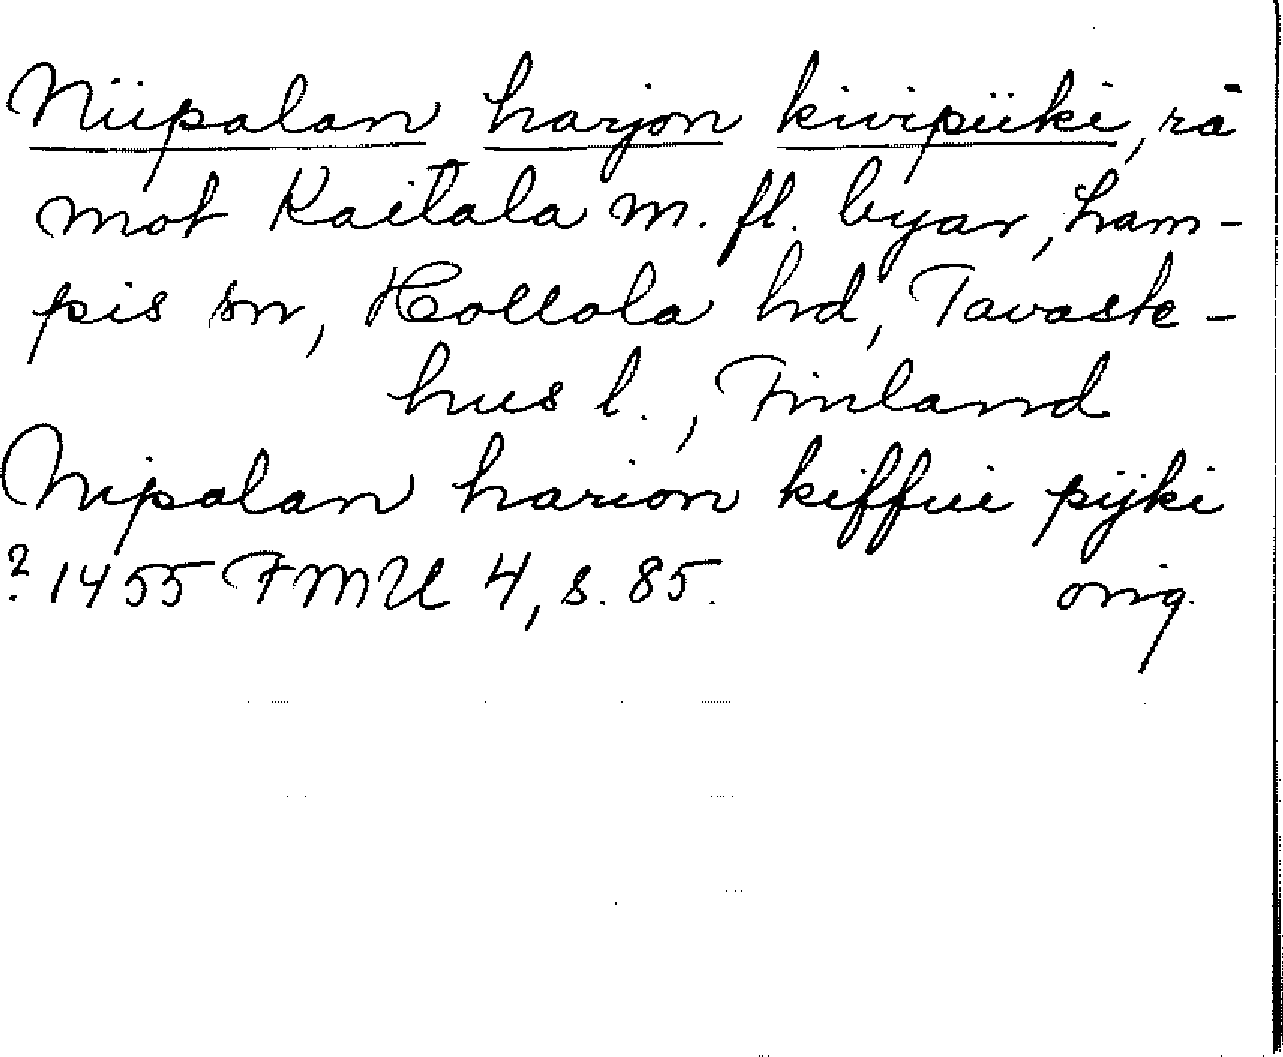 Niipalan harjon kivipiiki, rå
mot Kaitala m. fl. byar, Lam-
pis sn, Hollola hd, Tavaste-
hus l., Finland
Nipalan harion kiffui pijki
? 1455 FMU 4, s. 85. orig.